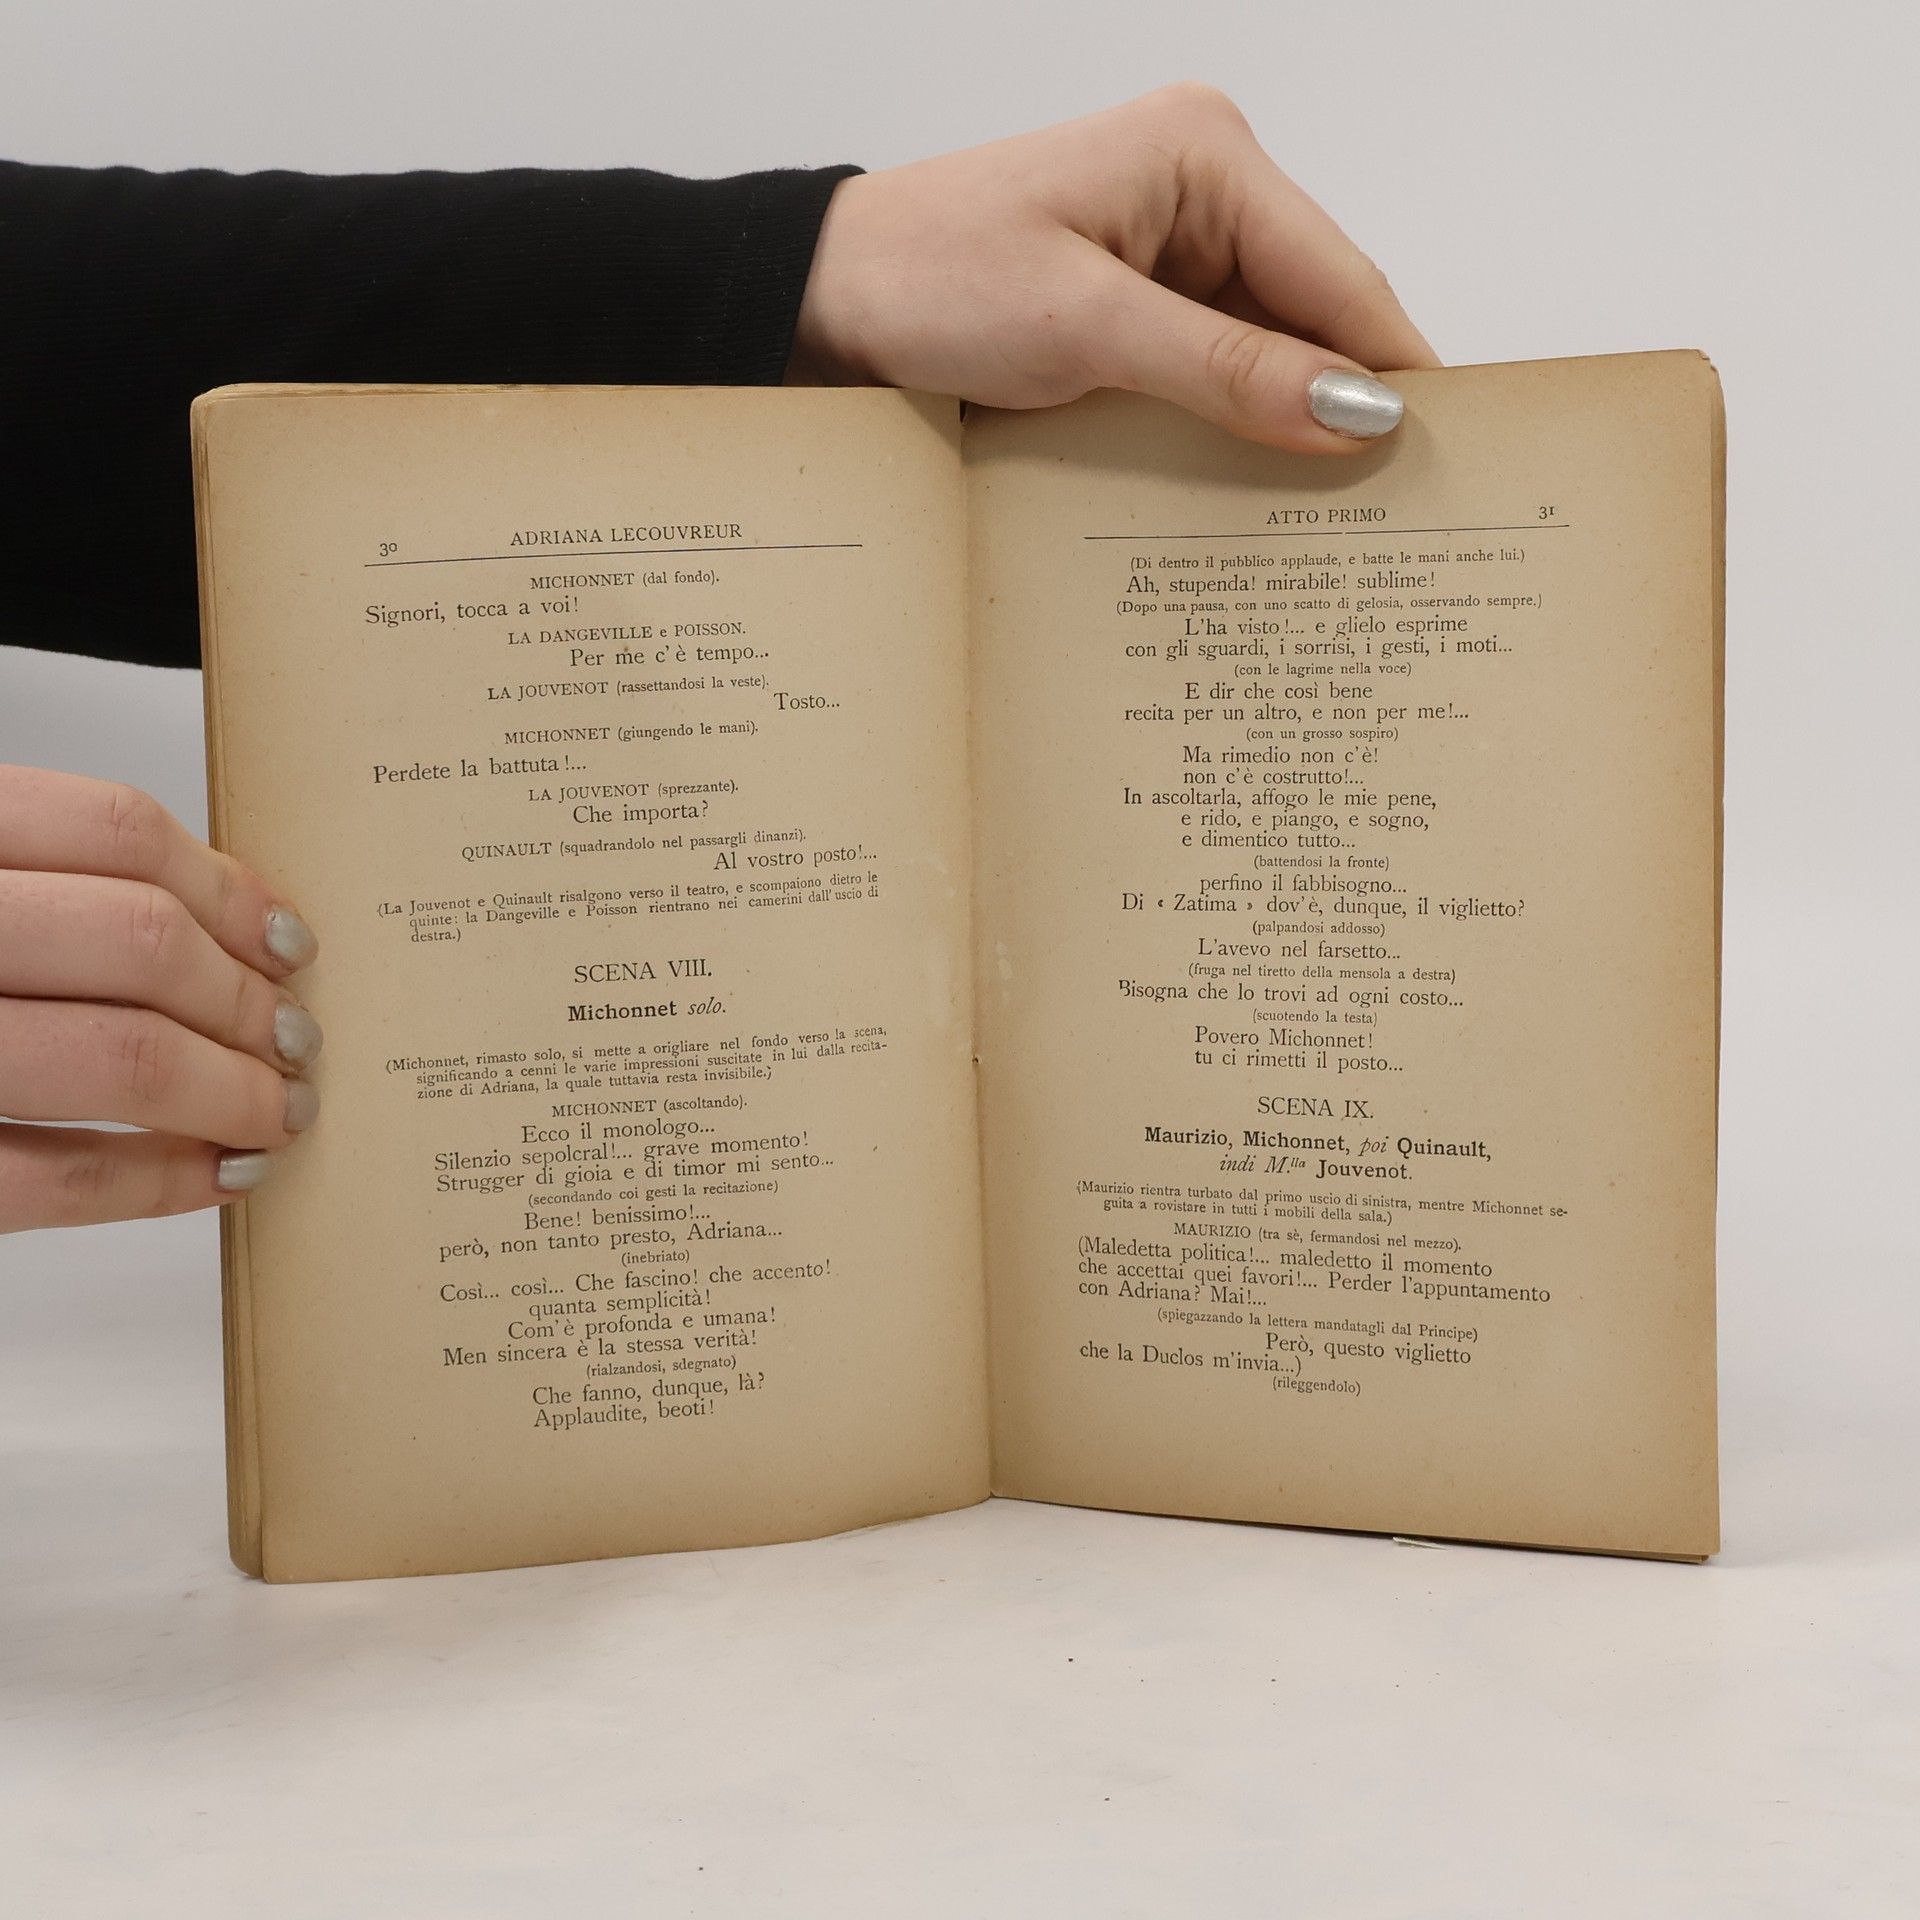 30 ADRIANA LECOUVREUR
MICHONNET (dal fondo).
Signori, tocca a voi!
LA DANGEVILLE e POISSON.
Per me c'è tempo...
LA JOUVENOT (rassettandosi la veste).
Tosto...
MICHONNET (giungendo le mani).
Perdete la battuta!...
LA JOUVENOT (sprezzante).
Che importa?
QUINAULT (squadrandolo nel passargli dinanzi).
Al vostro posto!...
(La Jouvenot e Quinault risalgono verso il teatro, e scompaiono dietro le
quinte: la Dangeville e Poisson rientrano nei camerini dall'uscio di
destra.)
SCENA VIII.
Michonnet solo.
(Michonnet, rimasto solo, si mette a origliare nel fondo verso la scena,
significando a cenni le varie impressioni suscitate in lui dalla recita-
zione di Adriana, la quale tuttavia resta invisibile.)
MICHONNET (ascoltando).
Ecco il monologo...
Silenzio sepolcral!... grave momento!
Strugger di gioia e di timor mi sento...
(secondando coi gesti la recitazione)
Bene! benissimo!...
però, non tanto presto, Adriana...
(inebriato)
Così... così... Che fascino! che accento!
quanta semplicità!
Com'è profonda e umana!
Men sincera è la stessa verità!
(rialzandosi, sdegnato)
Che fanno, dunque, là?
Applaudite, beoti!
ATTO PRIMO 31
(Di dentro il pubblico applaude, e batte le mani anche lui.)
Ah, stupenda! mirabile! sublime!
(Dopo una pausa, con uno scatto di gelosia, osservando sempre.)
L'ha visto!... e glielo esprime
con gli sguardi, i sorrisi, i gesti, i moti...
(con le lagrime nella voce)
E dir che così bene
recita per un altro, e non per me!...
(con un grosso sospiro)
Ma rimedio non c'è!
non c'è costrutto!...
In ascoltarla, affogo le mie pene,
e rido, e piango, e sogno,
e dimentico tutto...
(battendosi la fronte)
perfino il fabbisogno...
Di « Zatima » dov'è, dunque, il viglietto?
(palpandosi addosso)
L'avevo nel farsetto...
(fruga nel tiretto della mensola a destra)
Bisogna che lo trovi ad ogni costo...
(scuotendo la testa)
Povero Michonnet!
tu ci rimetti il posto...
SCENA IX.
Maurizio, Michonnet, poi Quinault,
indi M.lla Jouvenot.
(Maurizio rientra turbato dal primo uscio di sinistra, mentre Michonnet se-
guita a rovistare in tutti i mobili della sala.)
MAURIZIO (tra sè, fermandosi nel mezzo).
(Maledetta politica!... maledetto il momento
che accettai quei favori!... Perder l'appuntamento
con Adriana? Mai!...
(spiegazzando la lettera mandatagli dal Principe)
Però, questo viglietto
che la Duclos m'invia...)
(rileggendolo)